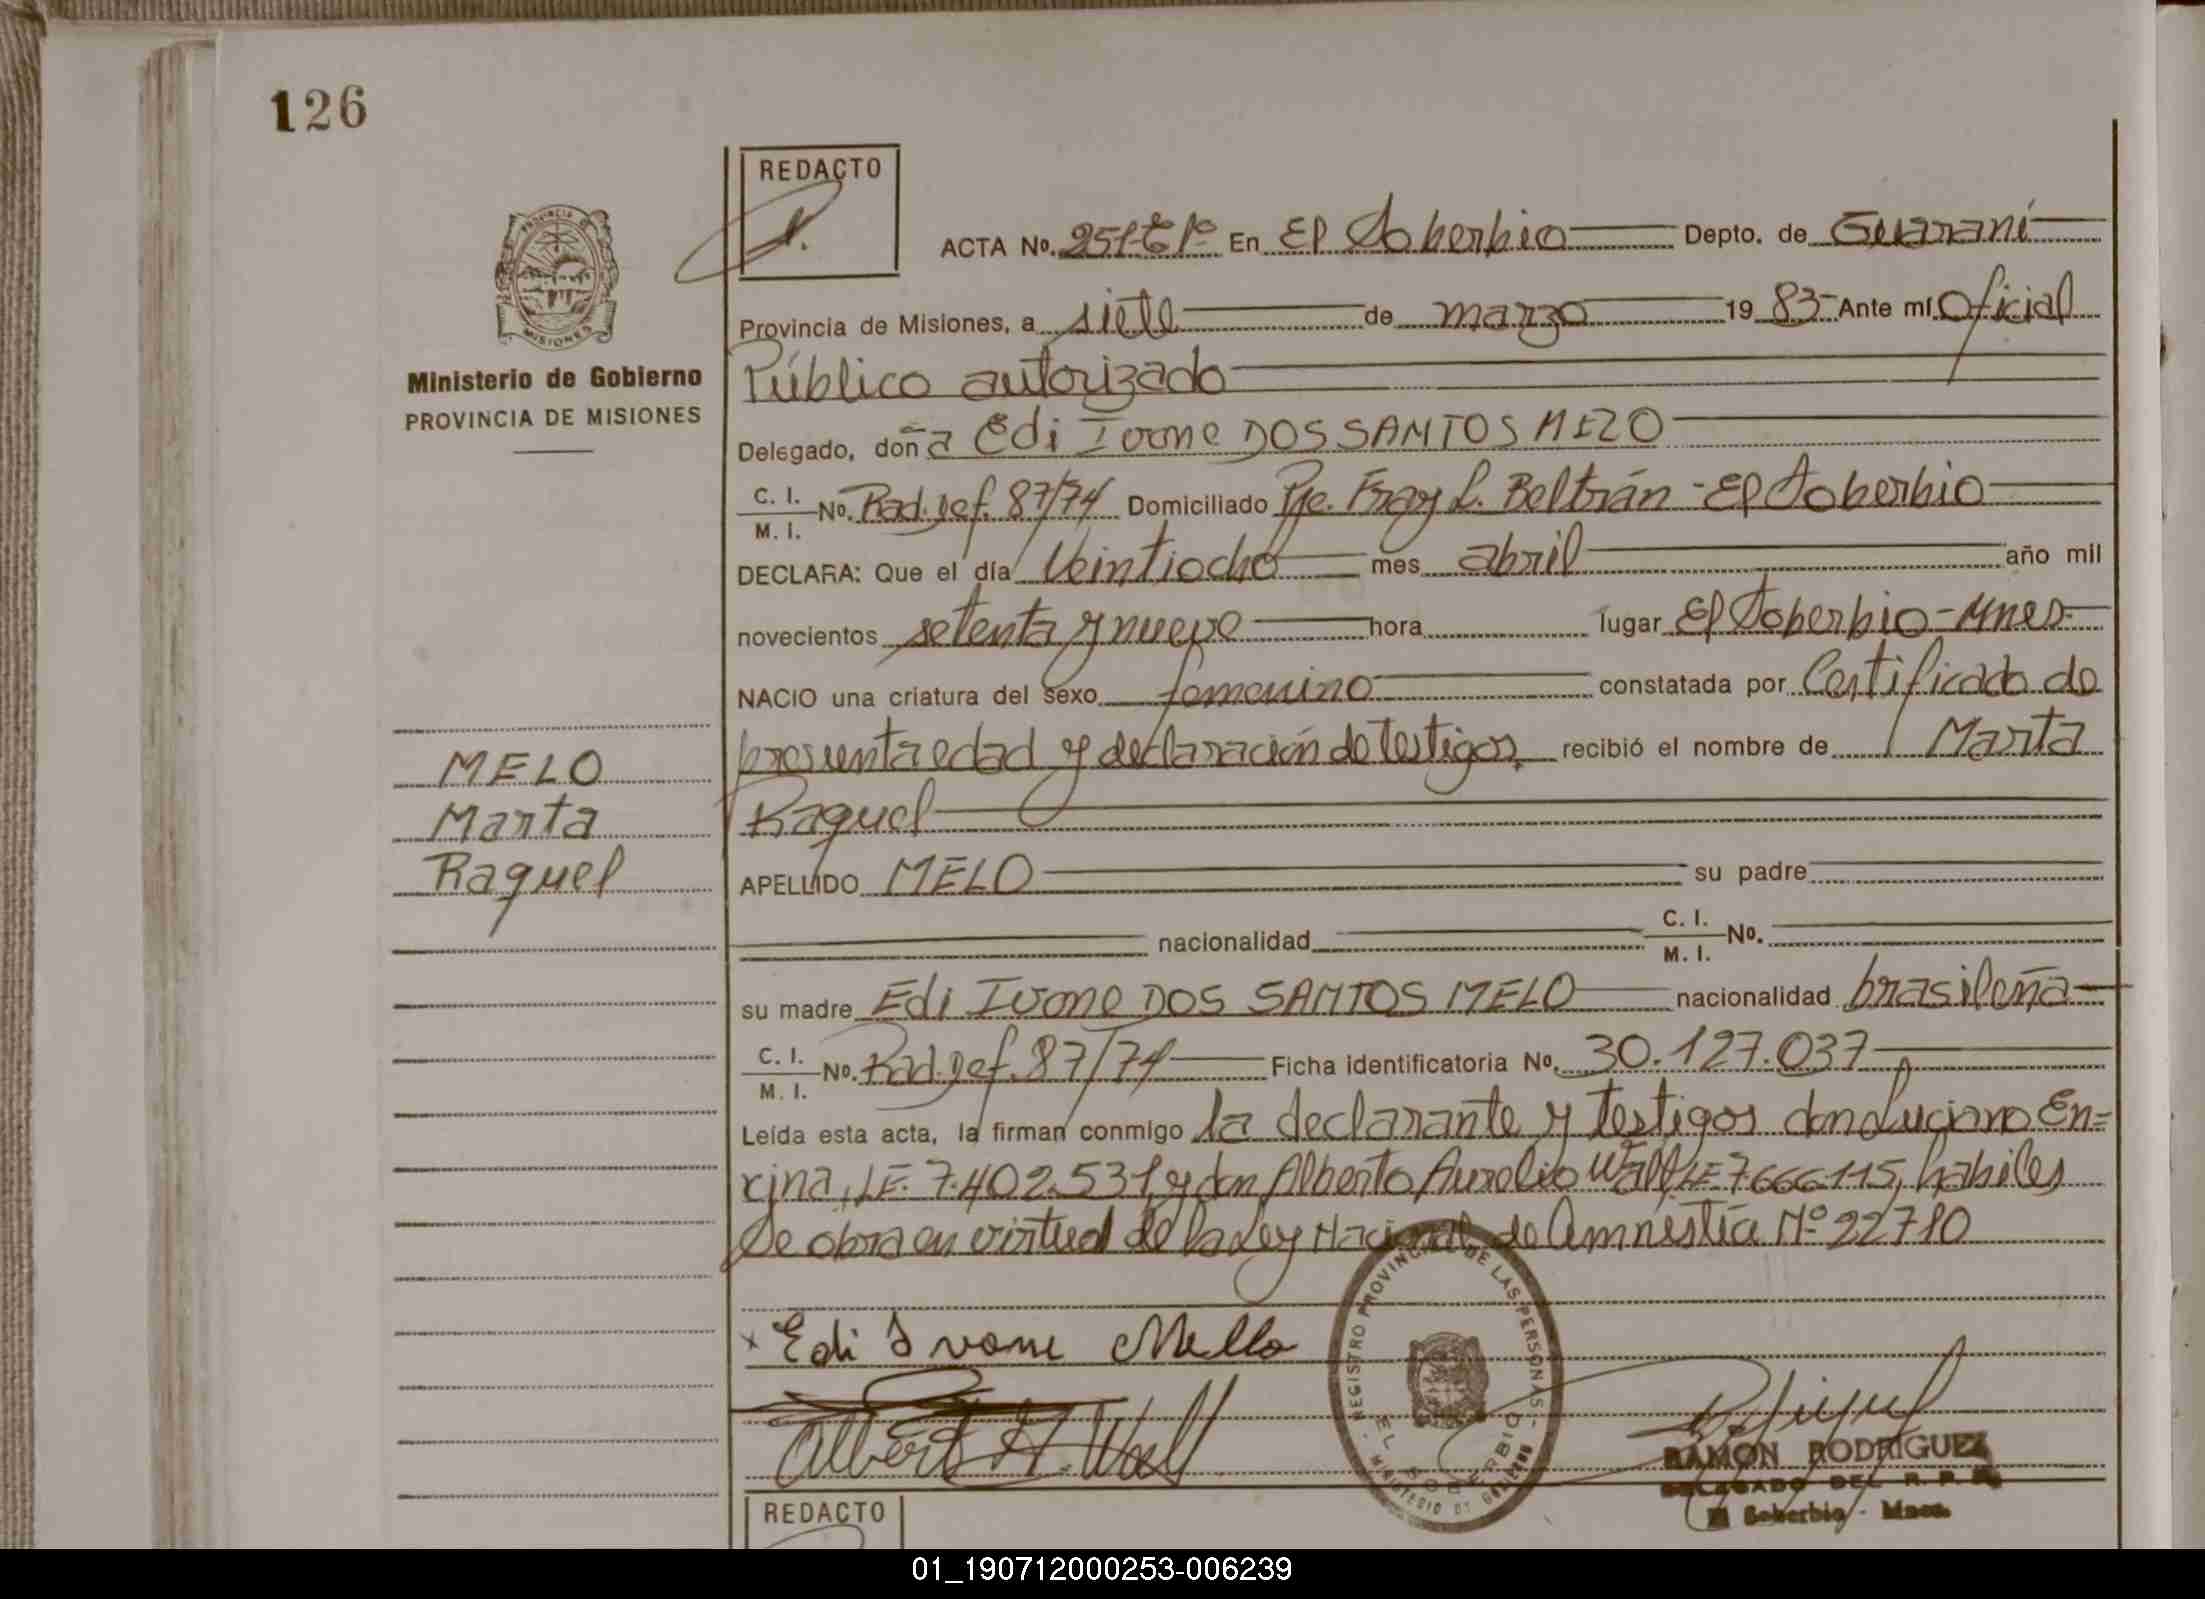 126
REDACTO
PROVINCIA DE
MISIONES
Ministerio de Gobierno
PROVINCIA DE MISIONES
ACTA No. 251-Tº1º En El Soberbio Depto. de Guaraní
Provincia de Misiones, a siete de marzo 19 83 Ante mí Oficial
Público autorizado
Delegado, doña Edi Ivone DOS SANTOS MELO
C. I.
M. I. No. Rad. Def. 87/74 Domiciliado Pje. Fray L. Beltrán - El Soberbio
DECLARA: Que el día Veintiocho mes abril año mil
novecientos setenta y nueve hora lugar El Soberbio - Mnes
NACIO una criatura del sexo femenino constatada por Certificado de
presunta edad y declaración de testigos recibió el nombre de Marta
Raquel
APELLIDO MELO su padre
nacionalidad C. I.
M. I. No.
su madre Edi Ivone DOS SANTOS MELO nacionalidad brasileña
C. I.
M. I. No. Rad. Def. 87/74 Ficha identificatoria No. 30.127.037
Leída esta acta, la firman conmigo la declarante y testigos don Luciano En=
cina, LE. 7.402.531 y don Alberto Aurelio Wall, LE 7666115, habiles
Se obra en virtud de la Ley Nacional de Amnistía Nº 22710
MELO
Marta
Raquel
x Edi Ivone Mello
Albert A. Wall
REGISTRO PROVINCIAL DE LAS PERSONAS
EL SOBERBIO
MINISTERIO DE GOBIERNO
RAMON RODRIGUEZ
DELEGADO DEL R. P.
El Soberbio - Mnes.
REDACTO
01_190712000253-006239